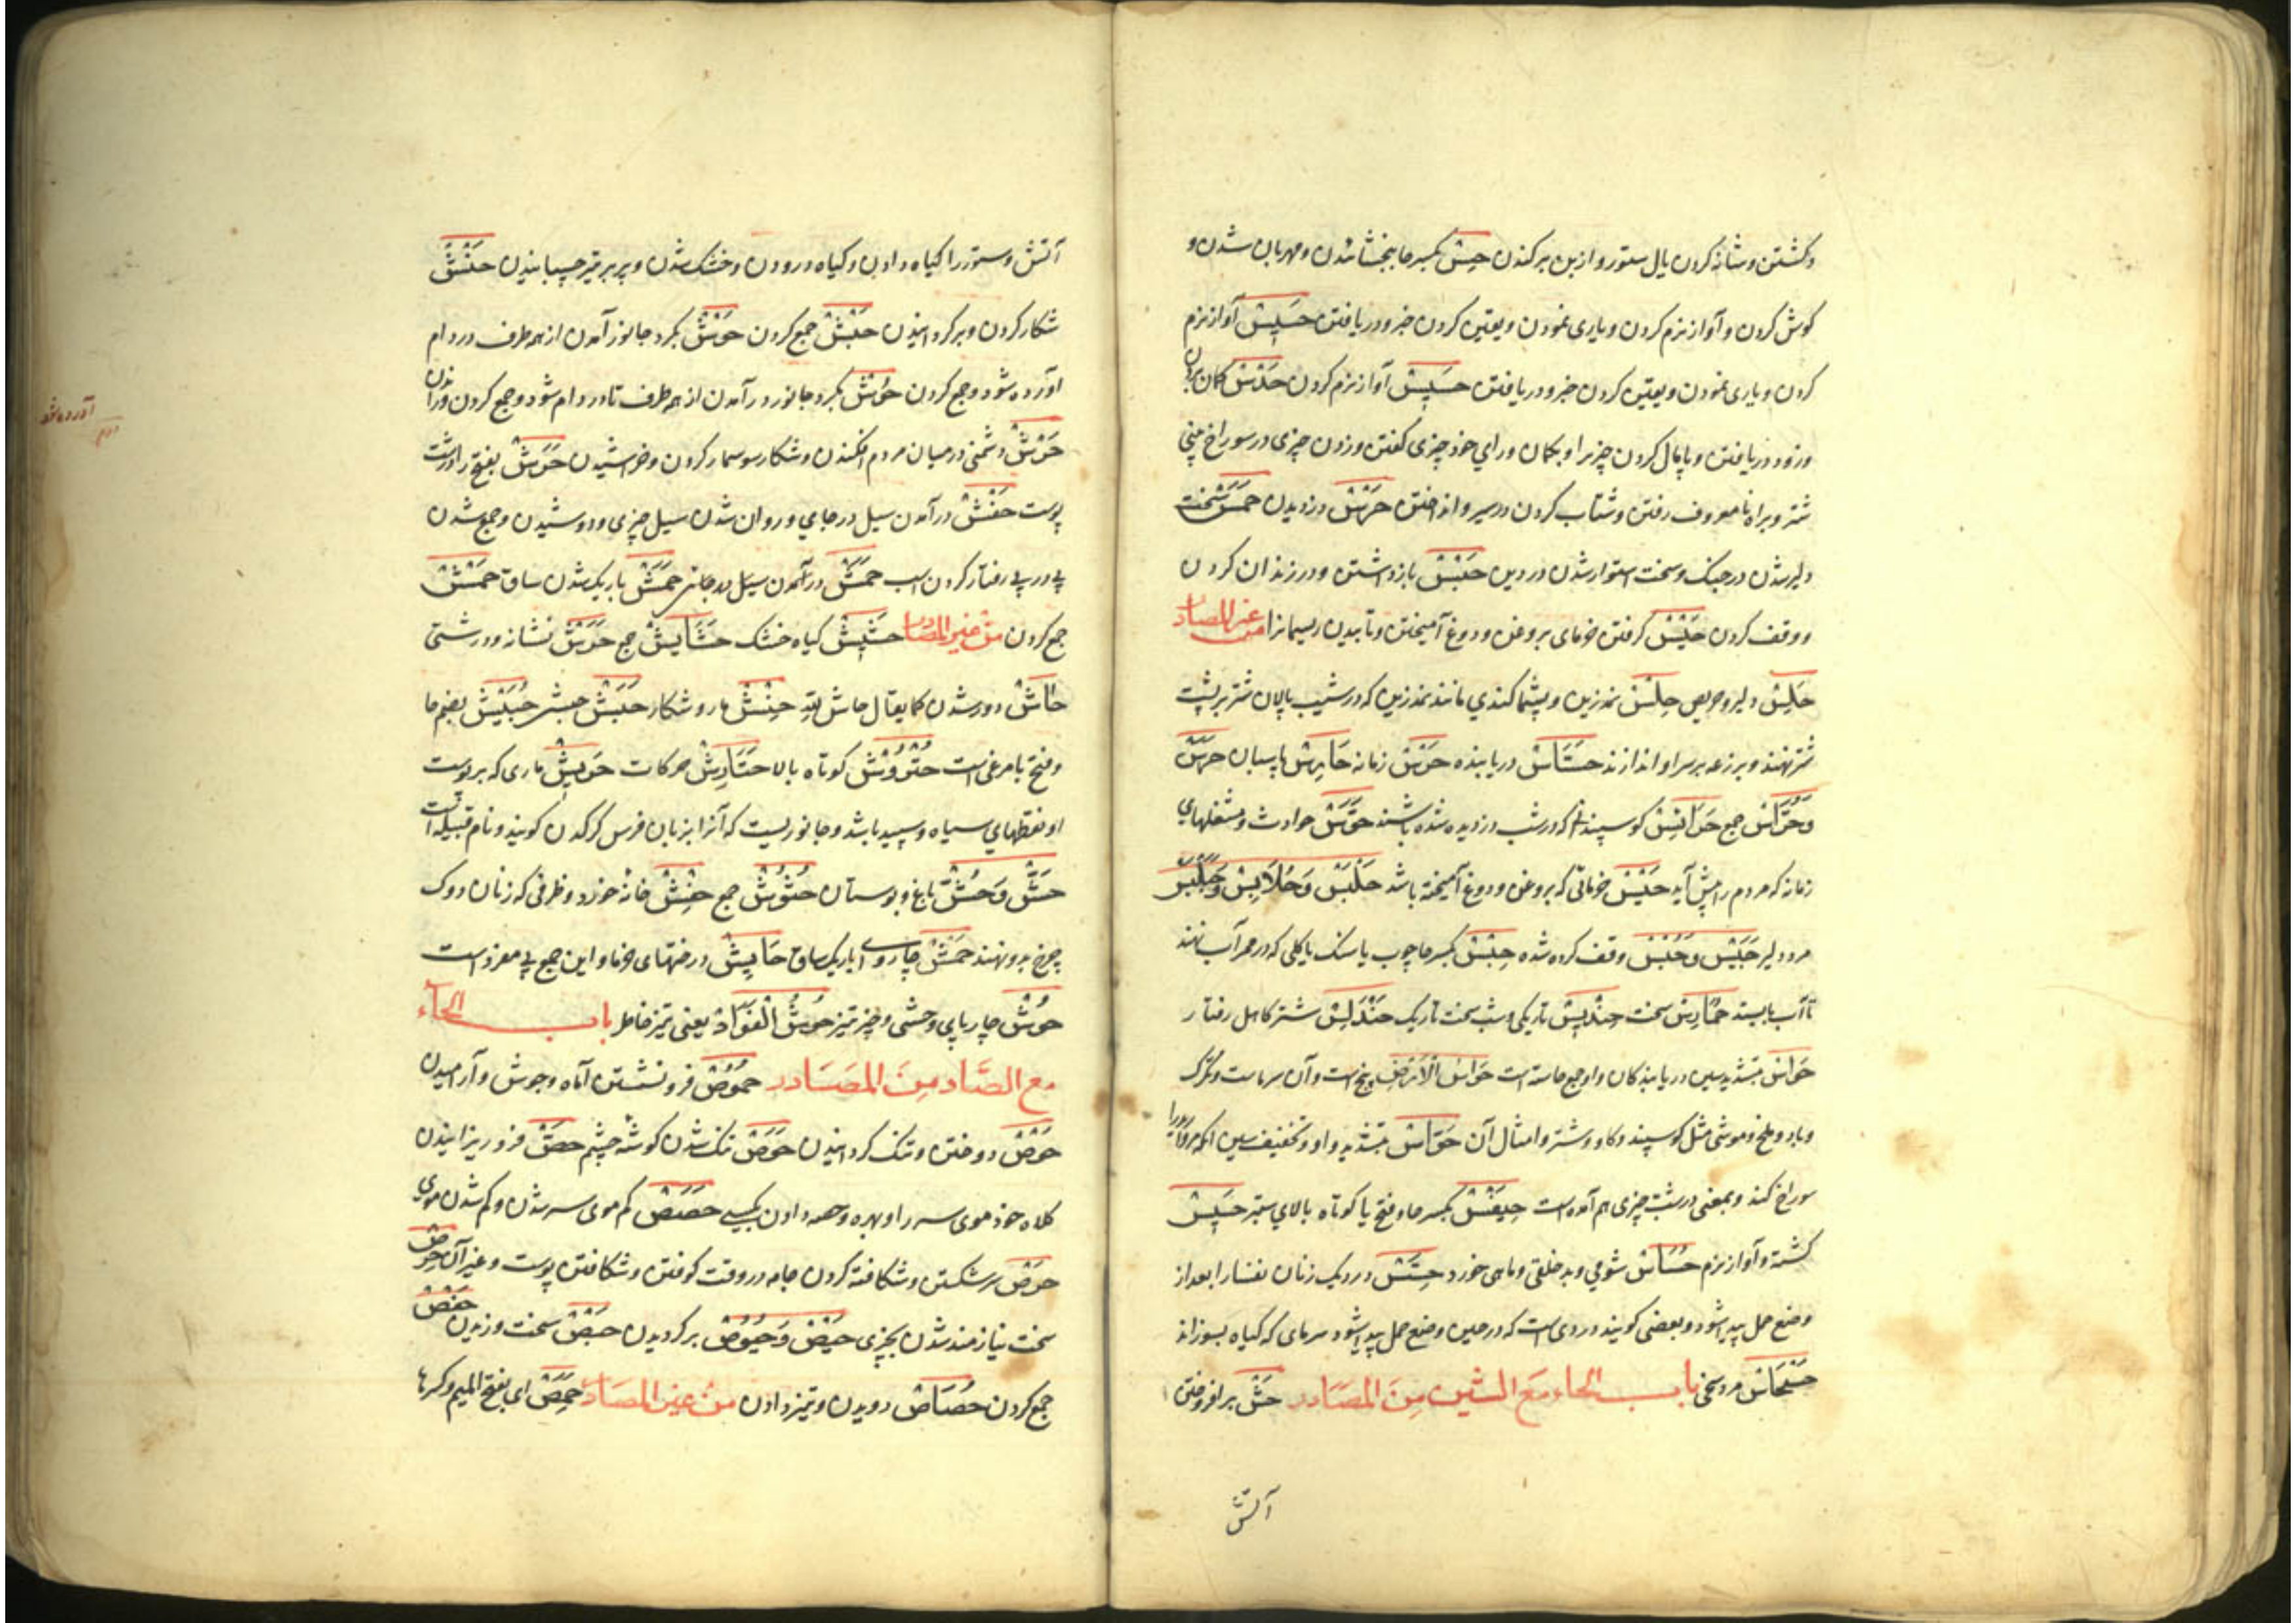 و کشتن و شانه کردن یال ستور و از بن برکندن حِسّ بکسر حا بخشائیدن و مهربان شدن و
کوش کردن و آواز نرم کردن و یاری نمودن و یقین کردن خبر و دریافتن حَسِیسٌ آواز نرم
کردن و یاری نمودن و یقین کردن خبر و دریافتن حَسِیسٌ آواز نرم کردن حَدْسٌ کمان بردن
و زود دریافتن و پایمال کردن چیزیرا و بکمان و رای خود چیزی کفتن و زدن چیزی در سوراخ بینی
شتر و براه نامعروف رفتن و شتاب کردن در سیر و انداختن حَرْسٌ دزدیدن حَمَسٌ سخت
دلیر شدن در جنک و سخت استوار شدن در دین حَبْسٌ بازداشتن و در زندان کردن
و وقف کردن حَیْسٌ کرفتن خرمای بروغن و دوغ آمیختن و تابیدن ریسمانرا من غیر المصادر
حَلِسٌ دلیر و حریص حِلْسٌ نمدزین و پشماکندی مانند نمدزین که در شیب پالان شتر بر پشت
شتر نهند و برزعه بر سر او اندازند حَسَّاسٌ دریابنده حَرْسٌ زمانه حَارِسٌ پاسبان حَرَسٌ
وَحُرَّاسٌ جمع حَرَائِسٌ کوسپندانی که در شب دزدیده شده باشند حَوَّسٌ حوادث و مشغلهای
زمانه که مردم را پیش آید حَیْسٌ خرمائی که بروغن و دوغ آمیخته باشد حَلْبَسٌ وَحُلَابِسٌ وَحَلَبَّسٌ
مرد دلیر حَبِیْسٌ وَحُبُسٌ وقف کرده شده حِبْسٌ بکسر حا چوب یا سنک یا کلی که در ممر آب نهند
تا آب بایستد حُمَارِسٌ سخت حِنْدِسٌ تاریکی و شب سخت تاریک حَنْدَلِسٌ شتر کاهل رفتار
حَوَاسّ بتشدید سین دریابندکان و او جمع حاسه است حَوَاسُّ الْاَرْضِ پنج است و آن سرماست و تکرک
و باد و ملخ و مواشی مثل کوسپند و کاو و شتر و امثال آن حَوَّاسٌ بتشدید واو و تخفیف سین آنکه
سوراخ کند و بمعنی درشت چیزی هم آمده است حِیَفْسٌ بکسر حا و فتح یا کوتاه بالای ستبر حَسِیسٌ
کشته و آواز نرم حُسَاسٌ شومی و بدخلقی و ماهی خورد حِسّ دردیکه زنان نفسا را بعد از
وضع حمل پیدا شود و بعضی کویند دردی است که در حین وضع حمل پیدا شود سرمای که کیاه بسوزاند
مرد سخی باب الحاء مع الشین من المصادر حَشّ برافروختن
آتش
آتش و ستور را کیاه دادن و کیاه درودن و خشک شدن و پر بر تیر چسبانیدن حَنْشٌ
شکار کردن و برکردانیدن حَبْشٌ جمع کردن حَوْشٌ بکرد جانور آمدن از همه طرف در دام
آورده شود و جمع کردن حَوْشٌ بکرد جانور درآمدن از همه طرف تا در دام شود و جمع کردن و راندن
آورده شود
حَرْشٌ دشمنی در میان مردم افکندن و شکار سوسمار کردن و خراشیدن حَرَشٌ بفتح را درشت
پوست حَفْشٌ درآمدن سیل در جای و روان شدن سیل چیزی و دوشیدن و جمع شدن
پی در پی رفتار کردن اسب حَمْشٌ درآمدن سیل بدجانی حَمَشٌ باریک شدن ساق حَمْشٌ
جمع کردن من غیر المصادر حَشِیشٌ کیاه خشک حَشَایِشٌ جمع حَرْشٌ نشانه و درشتی
حَاشَ دور شدن کما یقال حاش لله حَنَشٌ مار و شکار حَبَشٌ حبشه حُبَیْشٌ بضم حا
و فتح با مرغی است حُتْرُوشٌ کوتاه بالا حَتَارِشٌ حرکات حَرِیشٌ ماری که بر پوست
او نقطهای سیاه و سپید باشد و جانوریست که آنرا بزبان فرس کرکدن کویند و نام قبیله است
حَشٌّ وَحُشٌّ باغ و بوستان حُشُوْشٌ جمع حِفْشٌ خانهٔ خورد و ظرفی که زنان دوک
چرخ برو نهند حَمْشٌ چاروای باریک ساق حَایِشٌ درختهای خرما و این جمع بی مفرد است
حُوشٌ چارپای وحشی و چیز تیز حُوشُ الْفُوَادِ یعنی تیز خاطر باب الحاء
مع الصَّاد مِنَ المصَادر حُمُوْصٌ فرو نشستن آماه و جوش و آرامیدن
حَوْصٌ دوختن و تنک کردانیدن حَوَصٌ تنک شدن کوشه چشم حَصّ فرو ریزانیدن
کلاه خود موی سر را و بهره و حصه دادن بکسی حَصَصٌ کم موی سر شدن و کم شدن موی
حَرْصٌ سر شکستن و شکافته کردن جامه در وقت کوفتن و شکافتن پوست و غیر آن حِرْصٌ
سخت نیازمند شدن بچیزی حَیْصٌ وَحُیُوْصٌ برکردیدن حَبْصٌ سخت وزیدن حَفْصٌ
جمع کردن حُصَاصٌ دویدن و تیز دادن من غیر المصادر حِمَّصٌ ای بفتح المیم و کسرها